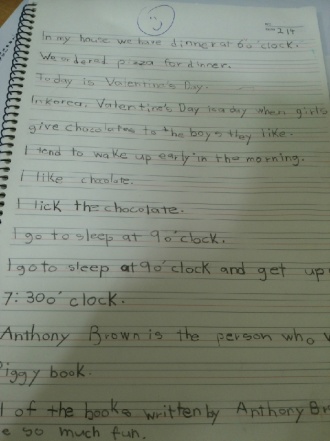 2/14
In my house we have dinner at 6o'clock.
We ordered pizza for dinner.
Today is Valentine's Day.
In korea, Valentine's Day is a day when girls
give chocolates to the boys they like.
I tend to wake up early in the morning.
I like chocolate.
I lick the chocolate.
I go to sleep at 9o'clock.
I go to sleep at 9o'clock and get up
7:30o'clock.
Anthony Brown is the person who
Piggy book.
of the books written by Anthony Br
so much fun.